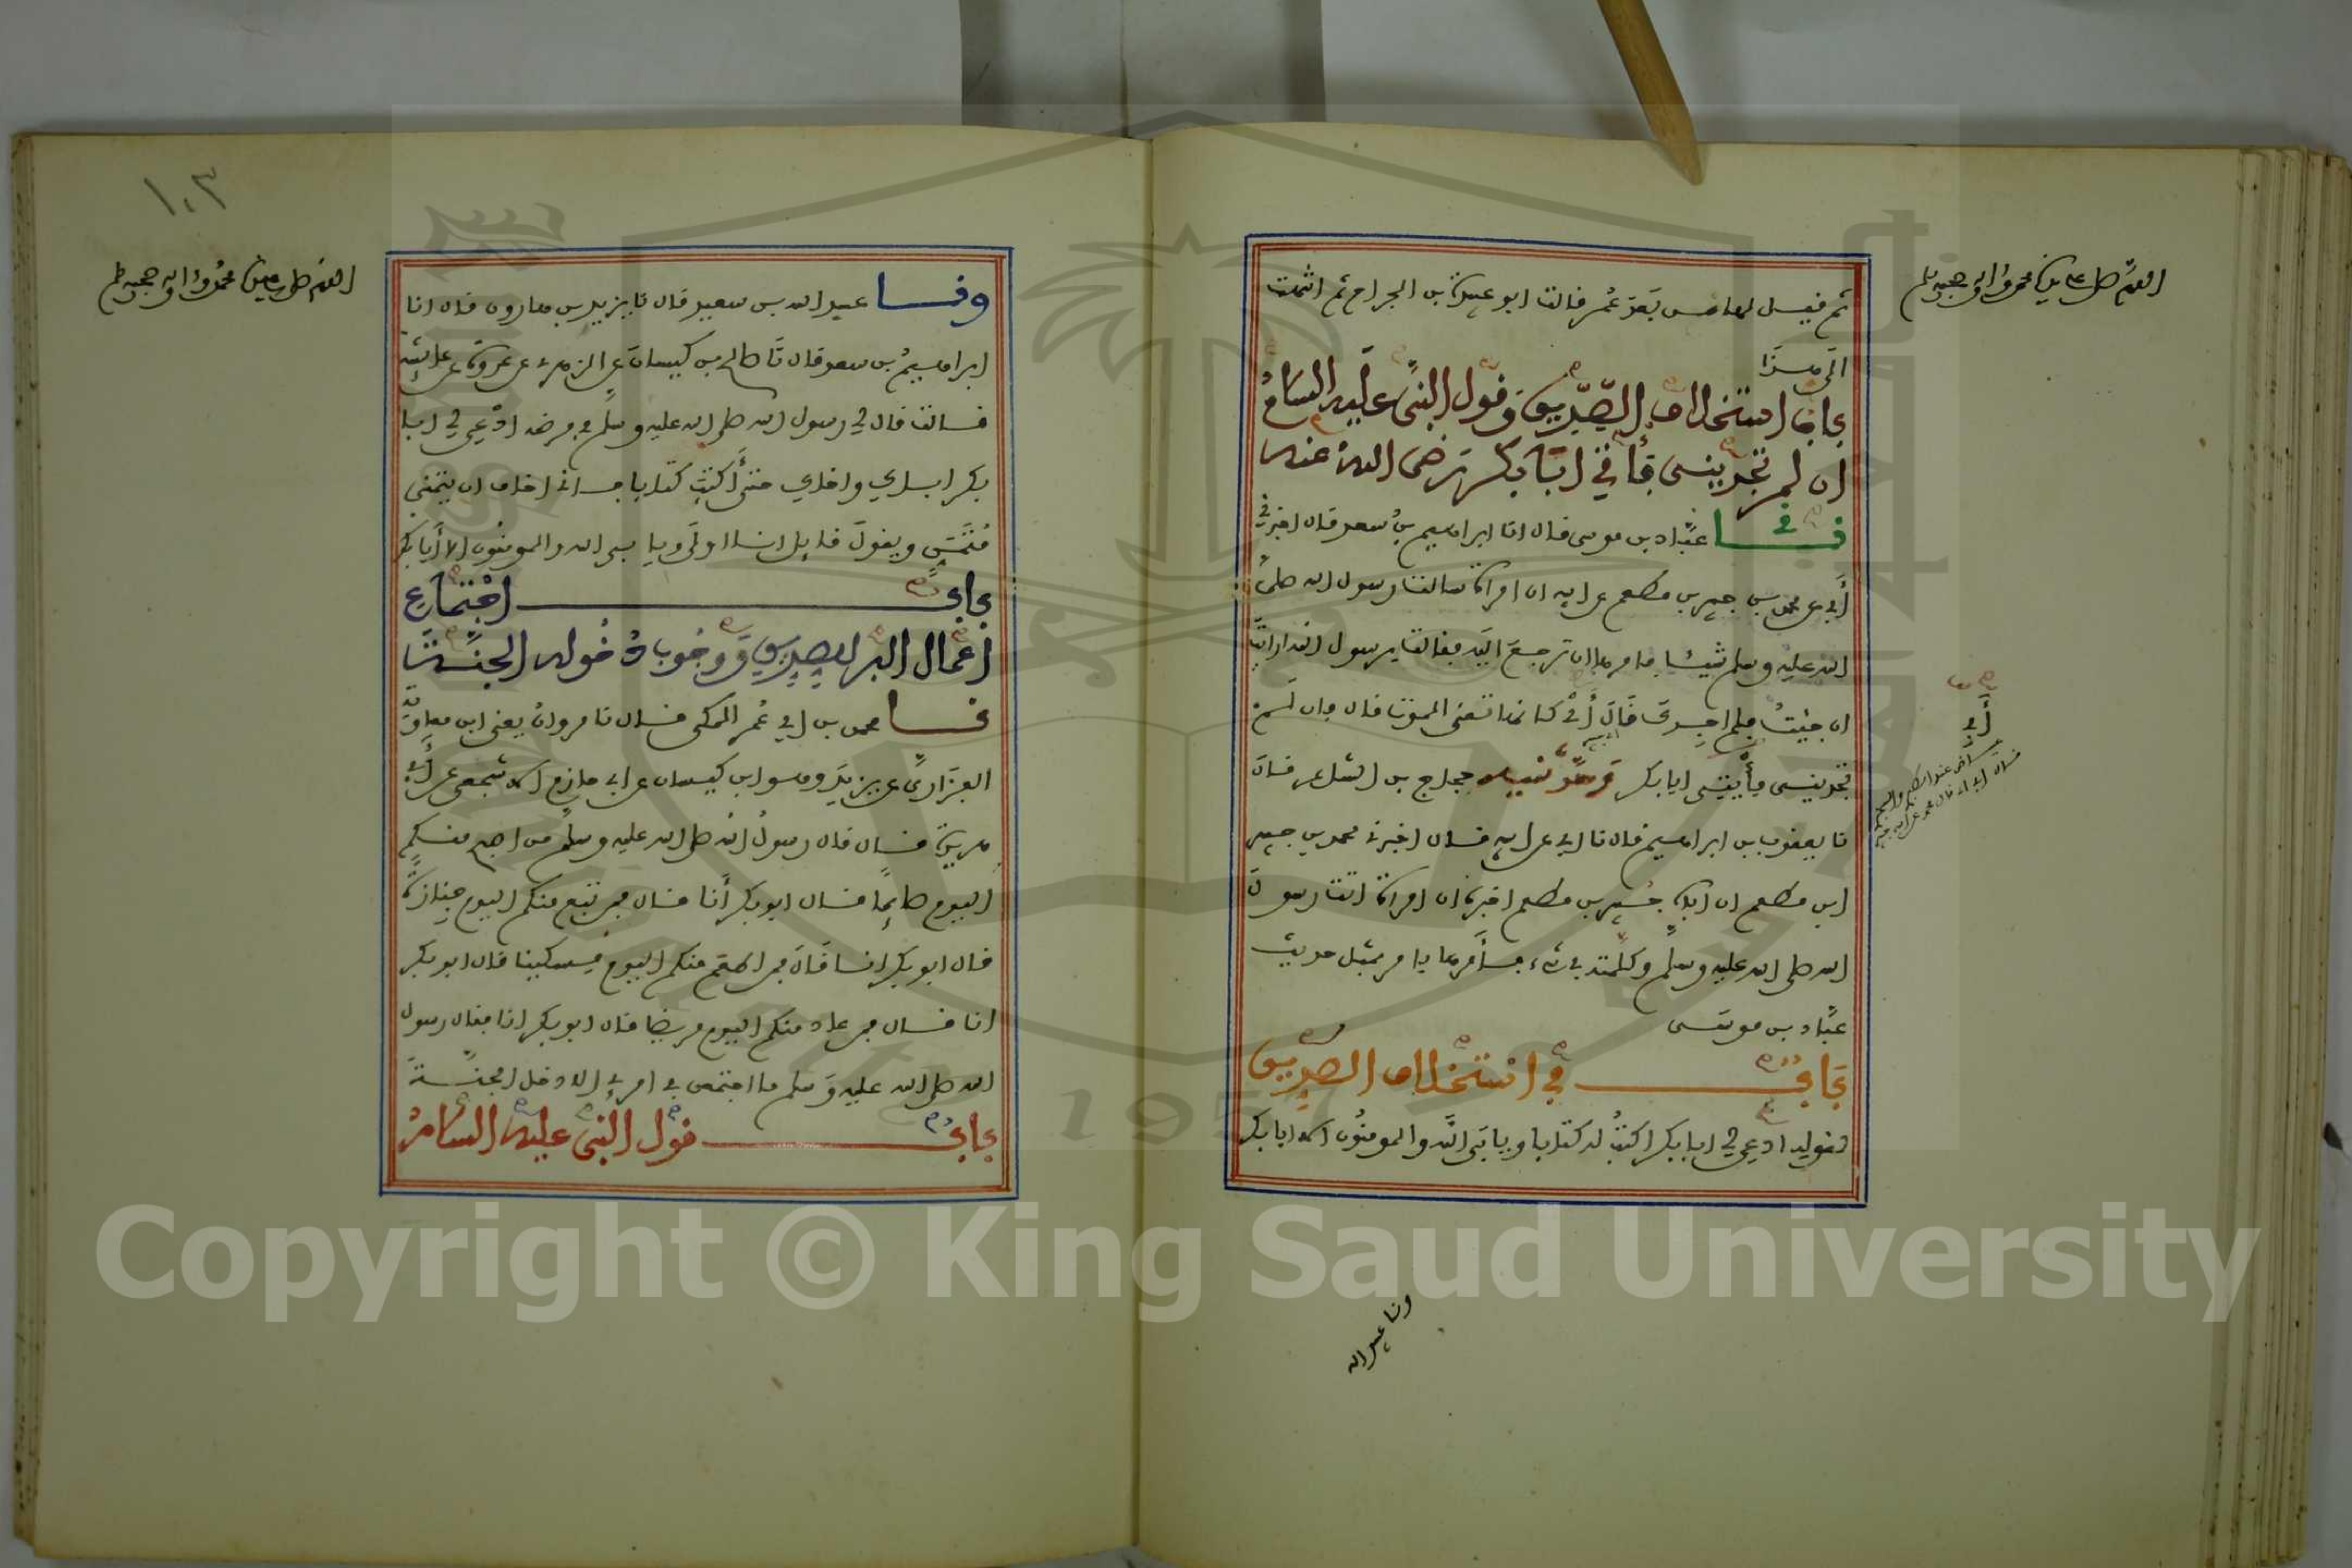 اللهم صل على سيدنا محمد وءاله وصحبه وسلم
ثم فيل لها من بعد عمر فالت ابو عبيدة بن الجراح ثم انتهت
الى هذا
باب استخلاف الصديق وفول النبي عليه السلام
ان لم تجديني فأتي ابا بكر رضي الله عنه
نا عباد بن موسى فال انا ابراهيم بن سعد فال اخبرني
أبي عن محمد بن جبير بن مطعم عن ابيه ان امراة سالت رسول الله صلى
الله عليه وسلم شيئا فامرها ان ترجع اليه ففالت يرسول الله ارايت
ان جئت فلم اجدك فال أبي كانها تعني الموت فال فان لم
تجديني فأتي ابا بكر وحدثنيه حجاج بن الشاعر فال
نا يعفوب بن ابراهيم فال نا ابي عن ابيه فال اخبرني محمد بن جبير
ابن مطعم ان اباه جبير بن مطعم اخبره ان امراة اتت رسول
الله صلى الله عليه وسلم وكلمته في شيء فأمرها بامر بمثل حديث
عباد بن موسى
باب في استخلاف الصديق
وفوله ادعي لي ابا بكر اكتب له كتابا ويابى الله والمومنون الا ابا بكر
أبي
ونا عبيد الله
١٠٣
اللهم صل على سيدنا محمد وءاله وصحبه وسلم
ونا عبيد الله بن سعيد فال نا يزيد بن هارون فال انا
ابراهيم بن سعد فال نا صالح بن كيسان عن الزهري عن عروة عن عائشة
فالت فال لي رسول الله صلى الله عليه وسلم في مرضه ادعي لي ابا
بكر اباك واخاك حتى أكتب كتابا فاني اخاف ان يتمنى
متمن ويفول فايل انا اولى ويابى الله والمومنون الا أبا بكر
باب اجتماع
أعمال البر للصديق ووجوب دخوله الجنة
نا محمد بن ابي عمر المكي فال نا مروان يعني ابن معاوية
الفزاري عن يزيد وهو ابن كيسان عن ابي حازم الاشجعي عن أبي
هريرة فال فال رسول الله صلى الله عليه وسلم من اصبح منكم
اليوم صائما فال ابو بكر أنا فال فمن تبع منكم اليوم جنازة
فال ابو بكر انا فال فمن اطعم منكم اليوم مسكينا فال ابو بكر
انا فال فمن عاد منكم اليوم مريضا فال ابو بكر انا ففال رسول
الله صلى الله عليه وسلم ما اجتمعن في امرئ إلا دخل الجنة
باب فول النبي عليه السلام
1957
Copyright © King Saud University